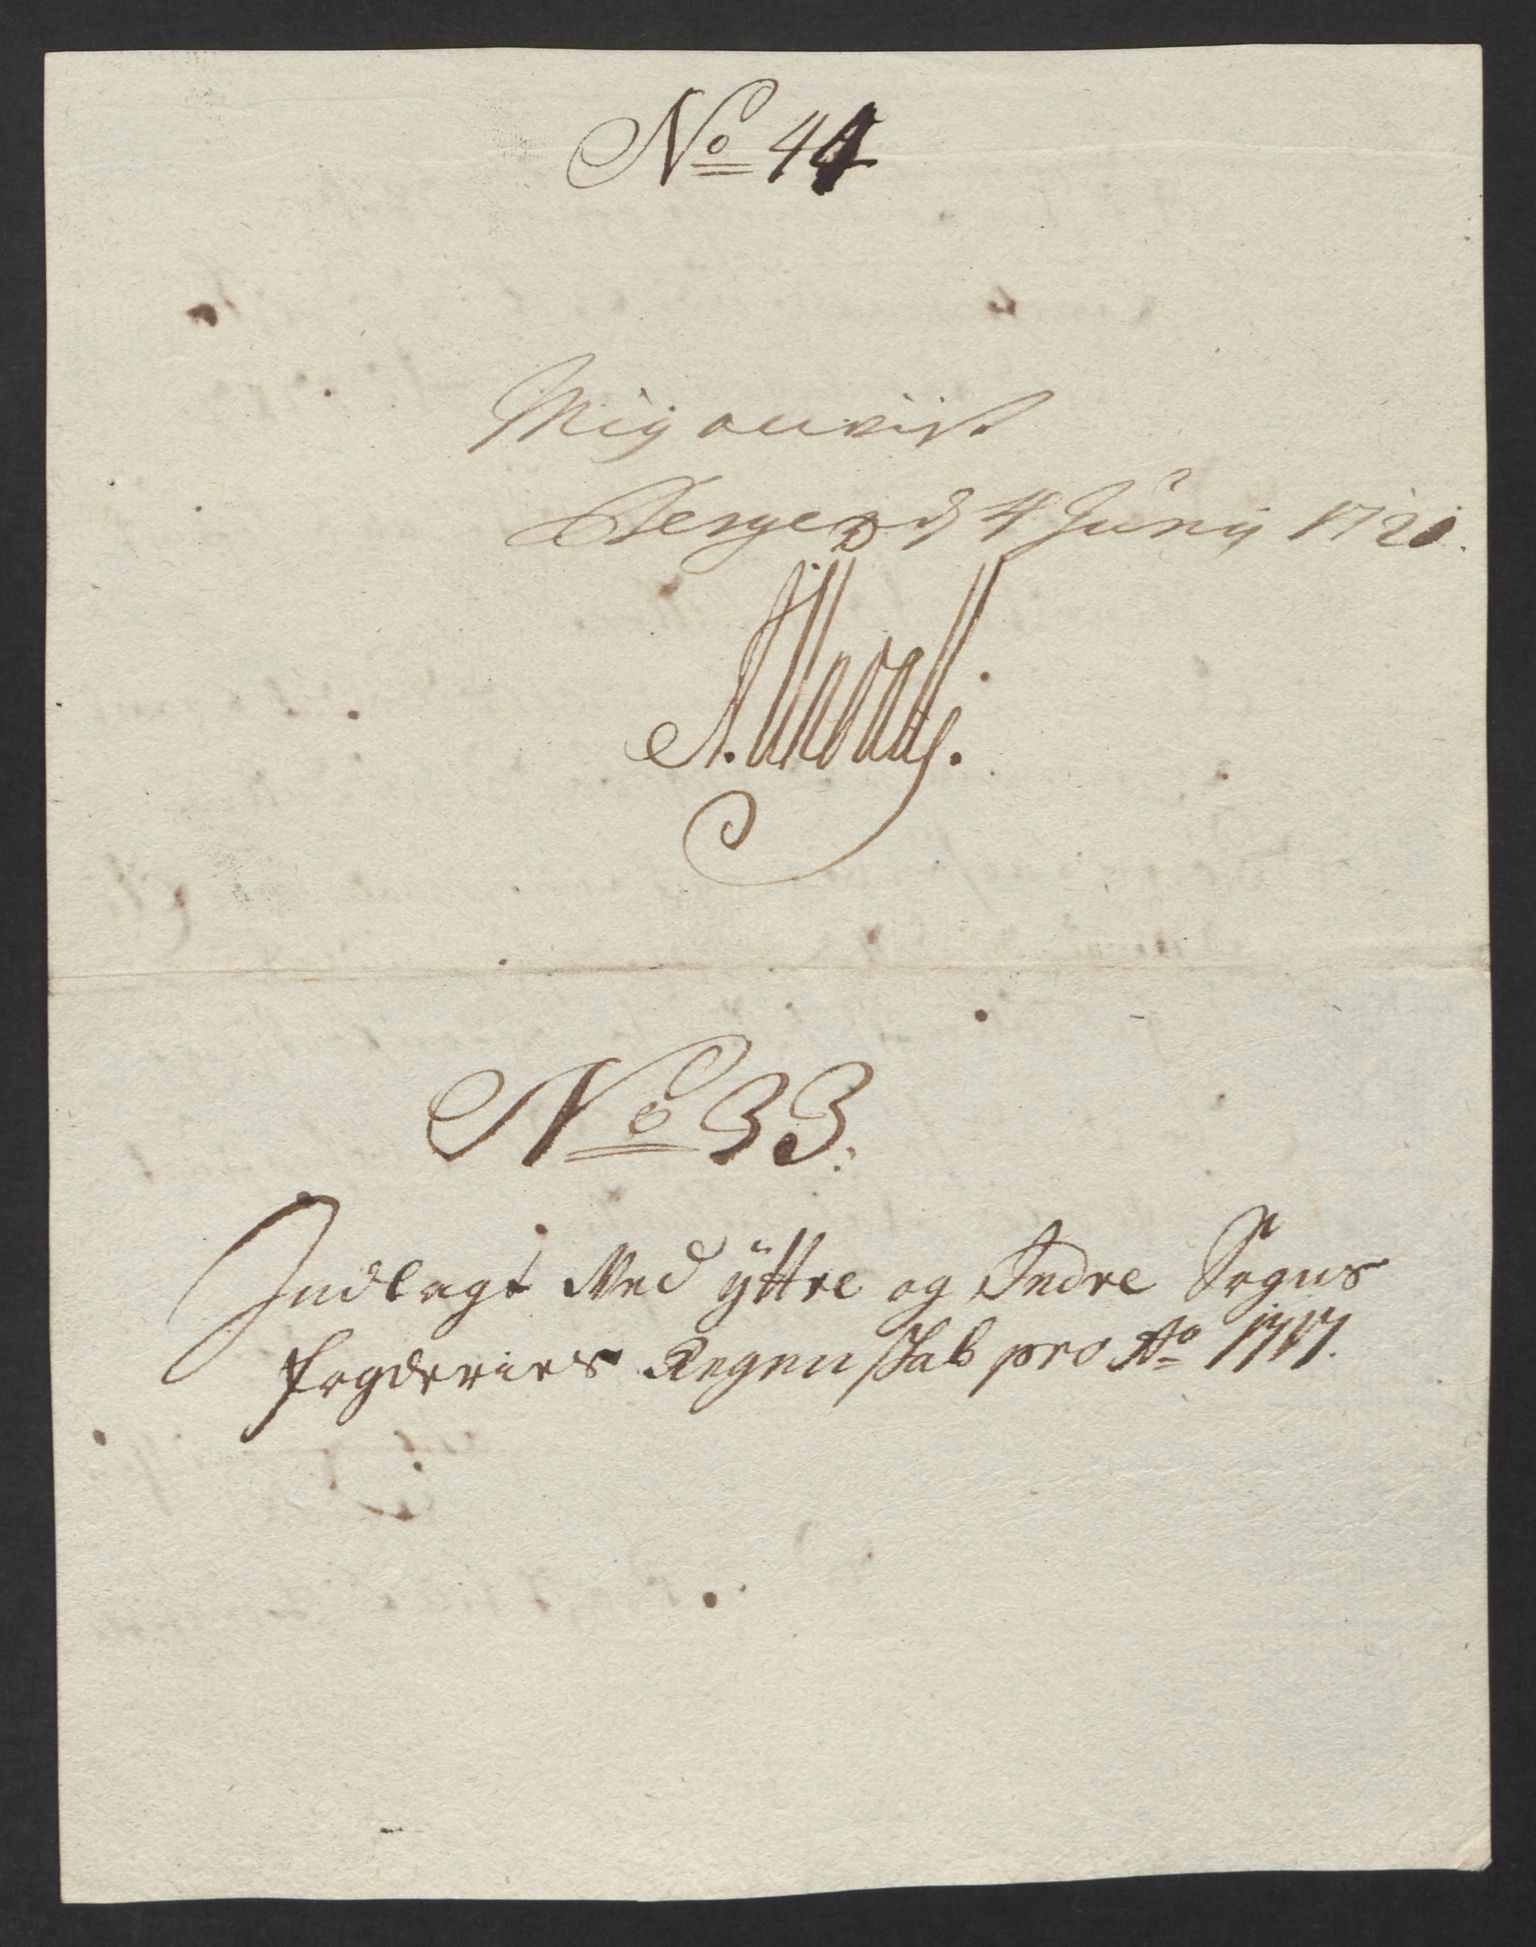 No 44
Mig anvist
Bergen d 4 Junij 1720.
No 33.
Indlagt Med ÿttre og Indre Sogns
fogderies Regenskab pro Ao 1717.